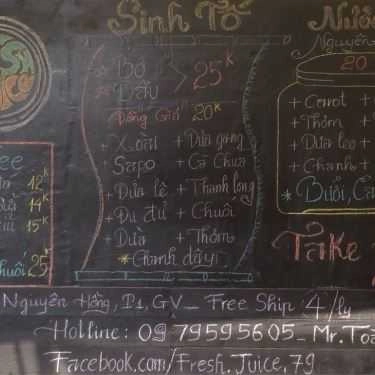 Sinh Tố
Bơ
Dâu
> 25K
Đồng Giá 20K
+ Xoài + Dừa gang
+ Sapo + Cà Chua
+ Dưa lê + Thanh long
+ Đu đủ + Chuối
+ Dừa + Thơm
* Chanh dây
Nước
Nguyên
20
+ Carrot +
+ Thơm +
+ Dưa leo
+ Chanh +
* Bưởi, Ca
Take
ee
12K
14K
15K
huối 25K
Nguyên Hồng, P1, GV_ Free Ship 4/ly
Hotline: 0979595605_ Mr.Toà
Facebook.com/Fresh.Juice.79